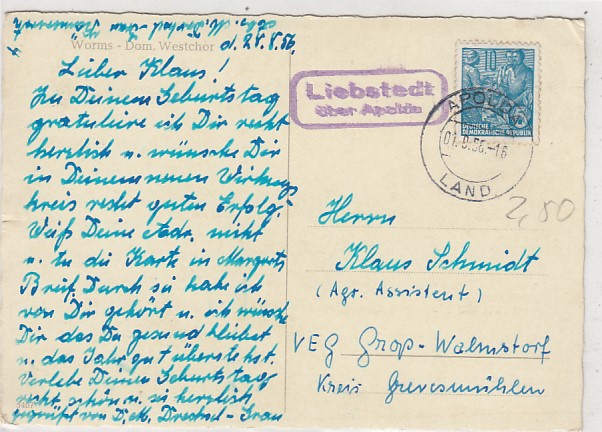 Worms - Dom, Westchor
d. 28.8.56.
Lieber Klaus!
Zu Deinem Geburtstag
gratuliere ich Dir recht
herzlich u. wünsche Dir
in Deinem neuen Wirkungs
kreis recht guten Erfolg.
Weiß Deine Adr. nicht
u. tu die Karte in Margrits
Brief. Durch sie habe ich
von Dir gehört u. ich wünsche
Dir das Du gesund bleibst
u. das Jahr gut überstehst.
Verlebe Deinen Geburtstag
recht schön u. sei herzlich
gegrüßt von D. M. Drechsel-Grau
Liebstedt
über Apolda
APOLDA
01.9.56.-16
LAND
DEUTSCHE
DEMOKRATISCHE REPUBLIK
2,50
Herrn
Klaus Schmidt
(Agr. Assistent)
VEG Groß-Walmstorf
Kreis Grevesmühlen